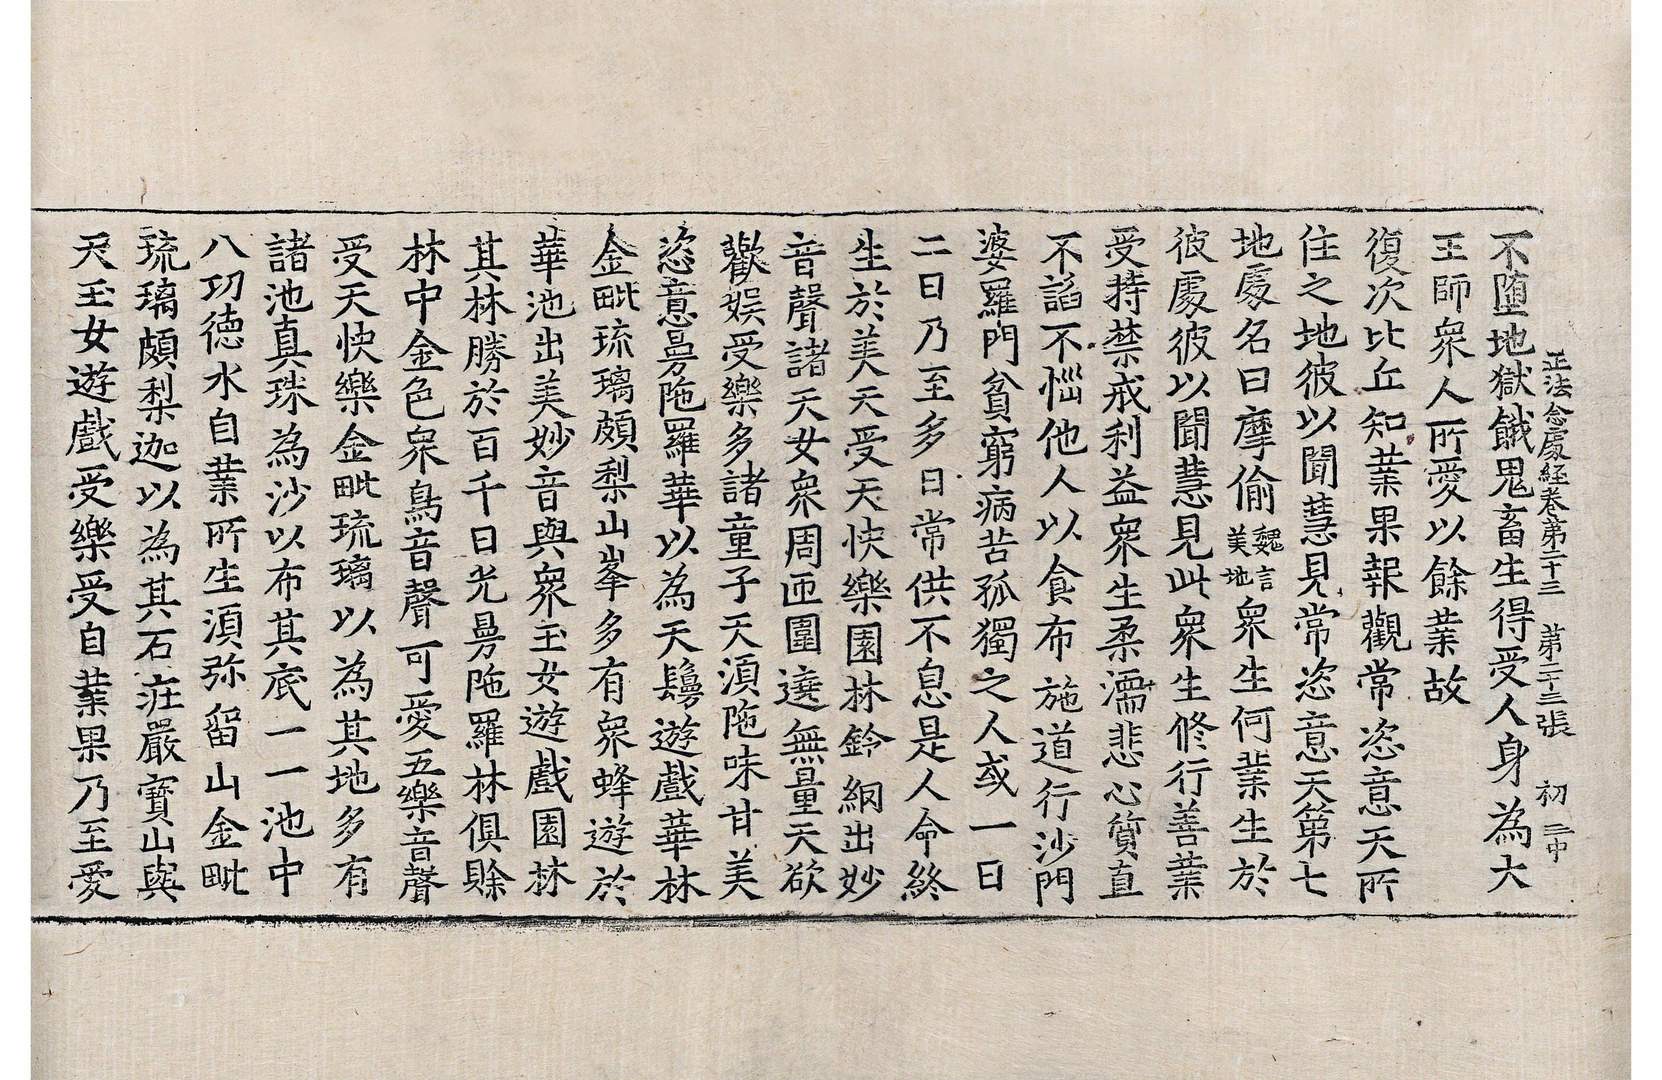 正法念處経卷第二十三　第二十三張　初
不堕地獄餓鬼畜生得受人身為大
王師衆人所愛以餘業故
復次比丘知業果報觀常恣意天所
住之地彼以聞慧見常恣意天第七
地處名曰摩偷魏言美地衆生何業生於
彼處彼以聞慧見此衆生修行善業
受持禁戒利益衆生柔濡悲心質直
不諂不惱他人以食布施道行沙門
婆羅門貧窮病苦孤獨之人或一日
二日乃至多日常供不息是人命終
生於美天受天快樂園林鈴網出妙
音聲諸天女衆周匝圍遶無量天欲
歡娛受樂多諸童子天須陁味甘美
恣意曼陁羅華以為天鬘遊戲華林
金毗琉璃頗梨山峯多有衆蜂遊於
華池出美妙音與衆玉女遊戲園林
其林勝於百千日光曼陁羅林俱賒
林中金色衆鳥音聲可愛五樂音聲
受天快樂金毗琉璃以為其地多有
諸池真珠為沙以布其底一一池中
八功德水自業所生須弥留山金毗
琉璃頗梨迦以為其石莊嚴寶山與
天玉女遊戲受樂受自業果乃至愛